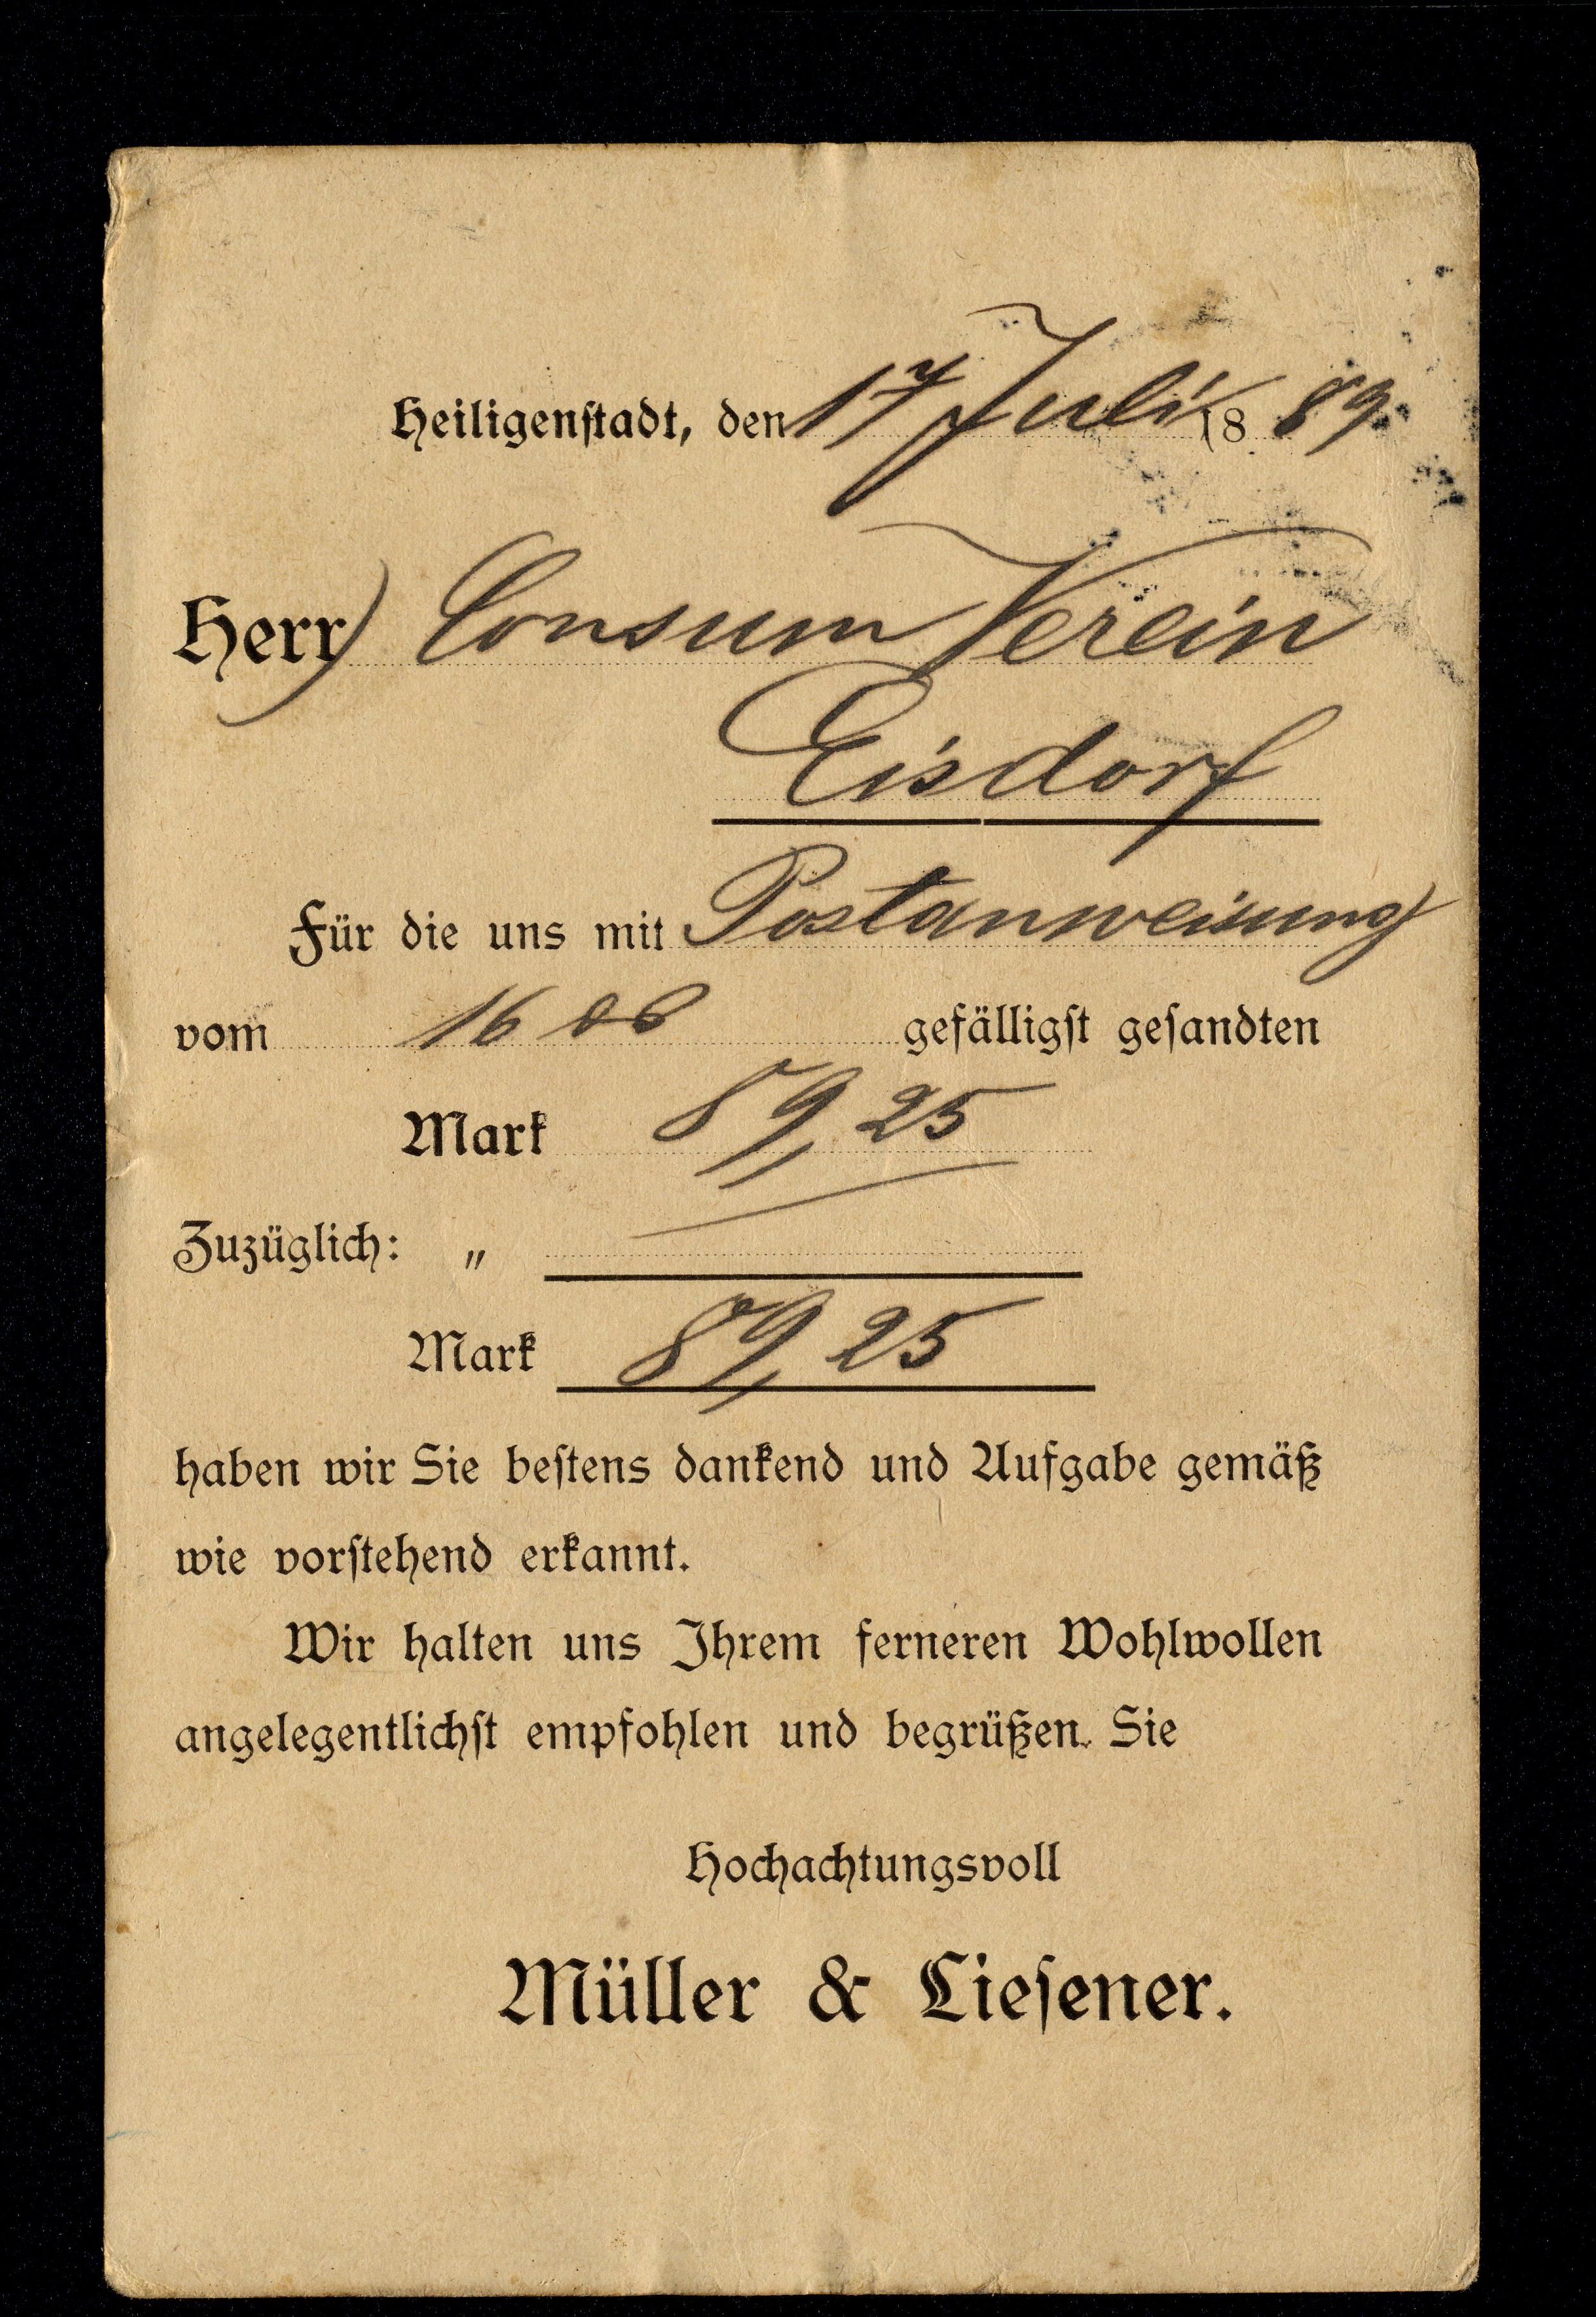 Heiligenstadt, den 17 Juli 18 89.
Herr Consum Verein
Eisdorf
Für die uns mit Postanweisung
vom 16 gefälligst gesandten
Mark 89,25
Zuzüglich: „
Mark 89,25
haben wir Sie bestens dankend und Aufgabe gemäß
wie vorstehend erkannt.
Wir halten uns Ihrem ferneren Wohlwollen
angelegentlichst empfohlen und begrüßen Sie
Hochachtungsvoll
Müller & Liesener.